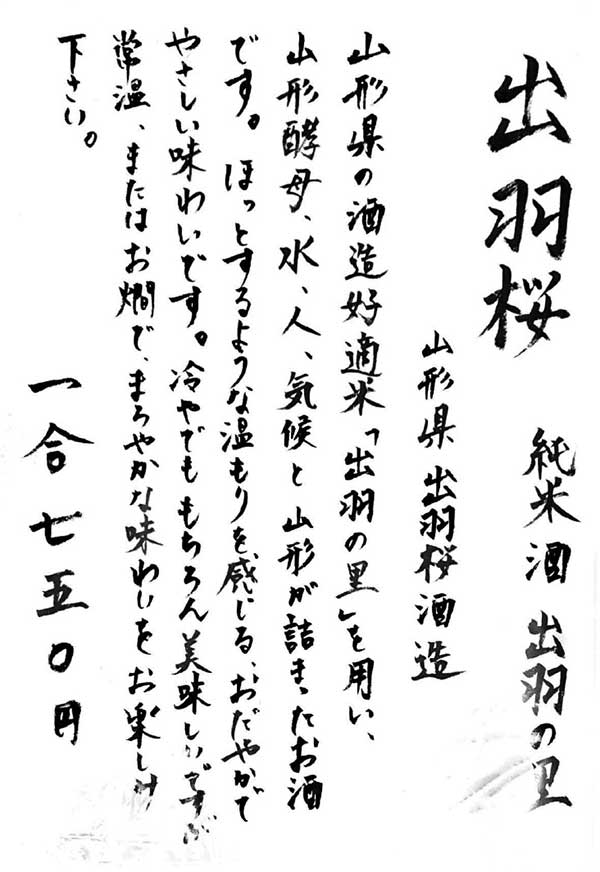 出羽桜
純米酒 出羽の里
山形県 出羽桜酒造
山形県の酒造好適米「出羽の里」を用い、
山形酵母、水、人、気候と山形が詰まったお酒
です。ほっとするような温もりを感じる、おだやかで
やさしい味わいです。冷やでももちろん美味しいですが
常温、またはお燗で、まろやかな味わいをお楽しみ
下さい。
一合七五〇円